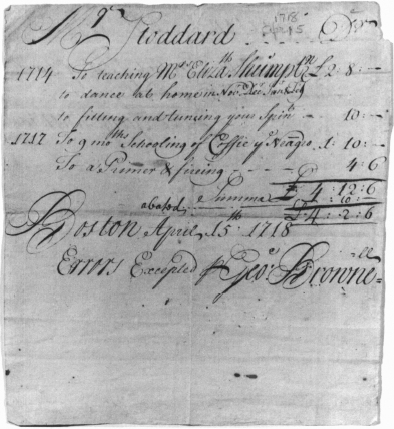 Mr Stoddard Dr
1718
1714 To teaching Mrs Eliza Shrimpton £2:8:—
to dance at home in Nov. Dec. Jan
to fitting and tuning your Spint —10:—
1717 To 9 moths Schooling of Coffie ye Neagro 1:10:—
To a Primer & fireing 4:6
Summa £:4:12:6
abated :10:—
£:4:2:6
Boston April 15th 1718
Errors Excepted pr Geo: Brownell